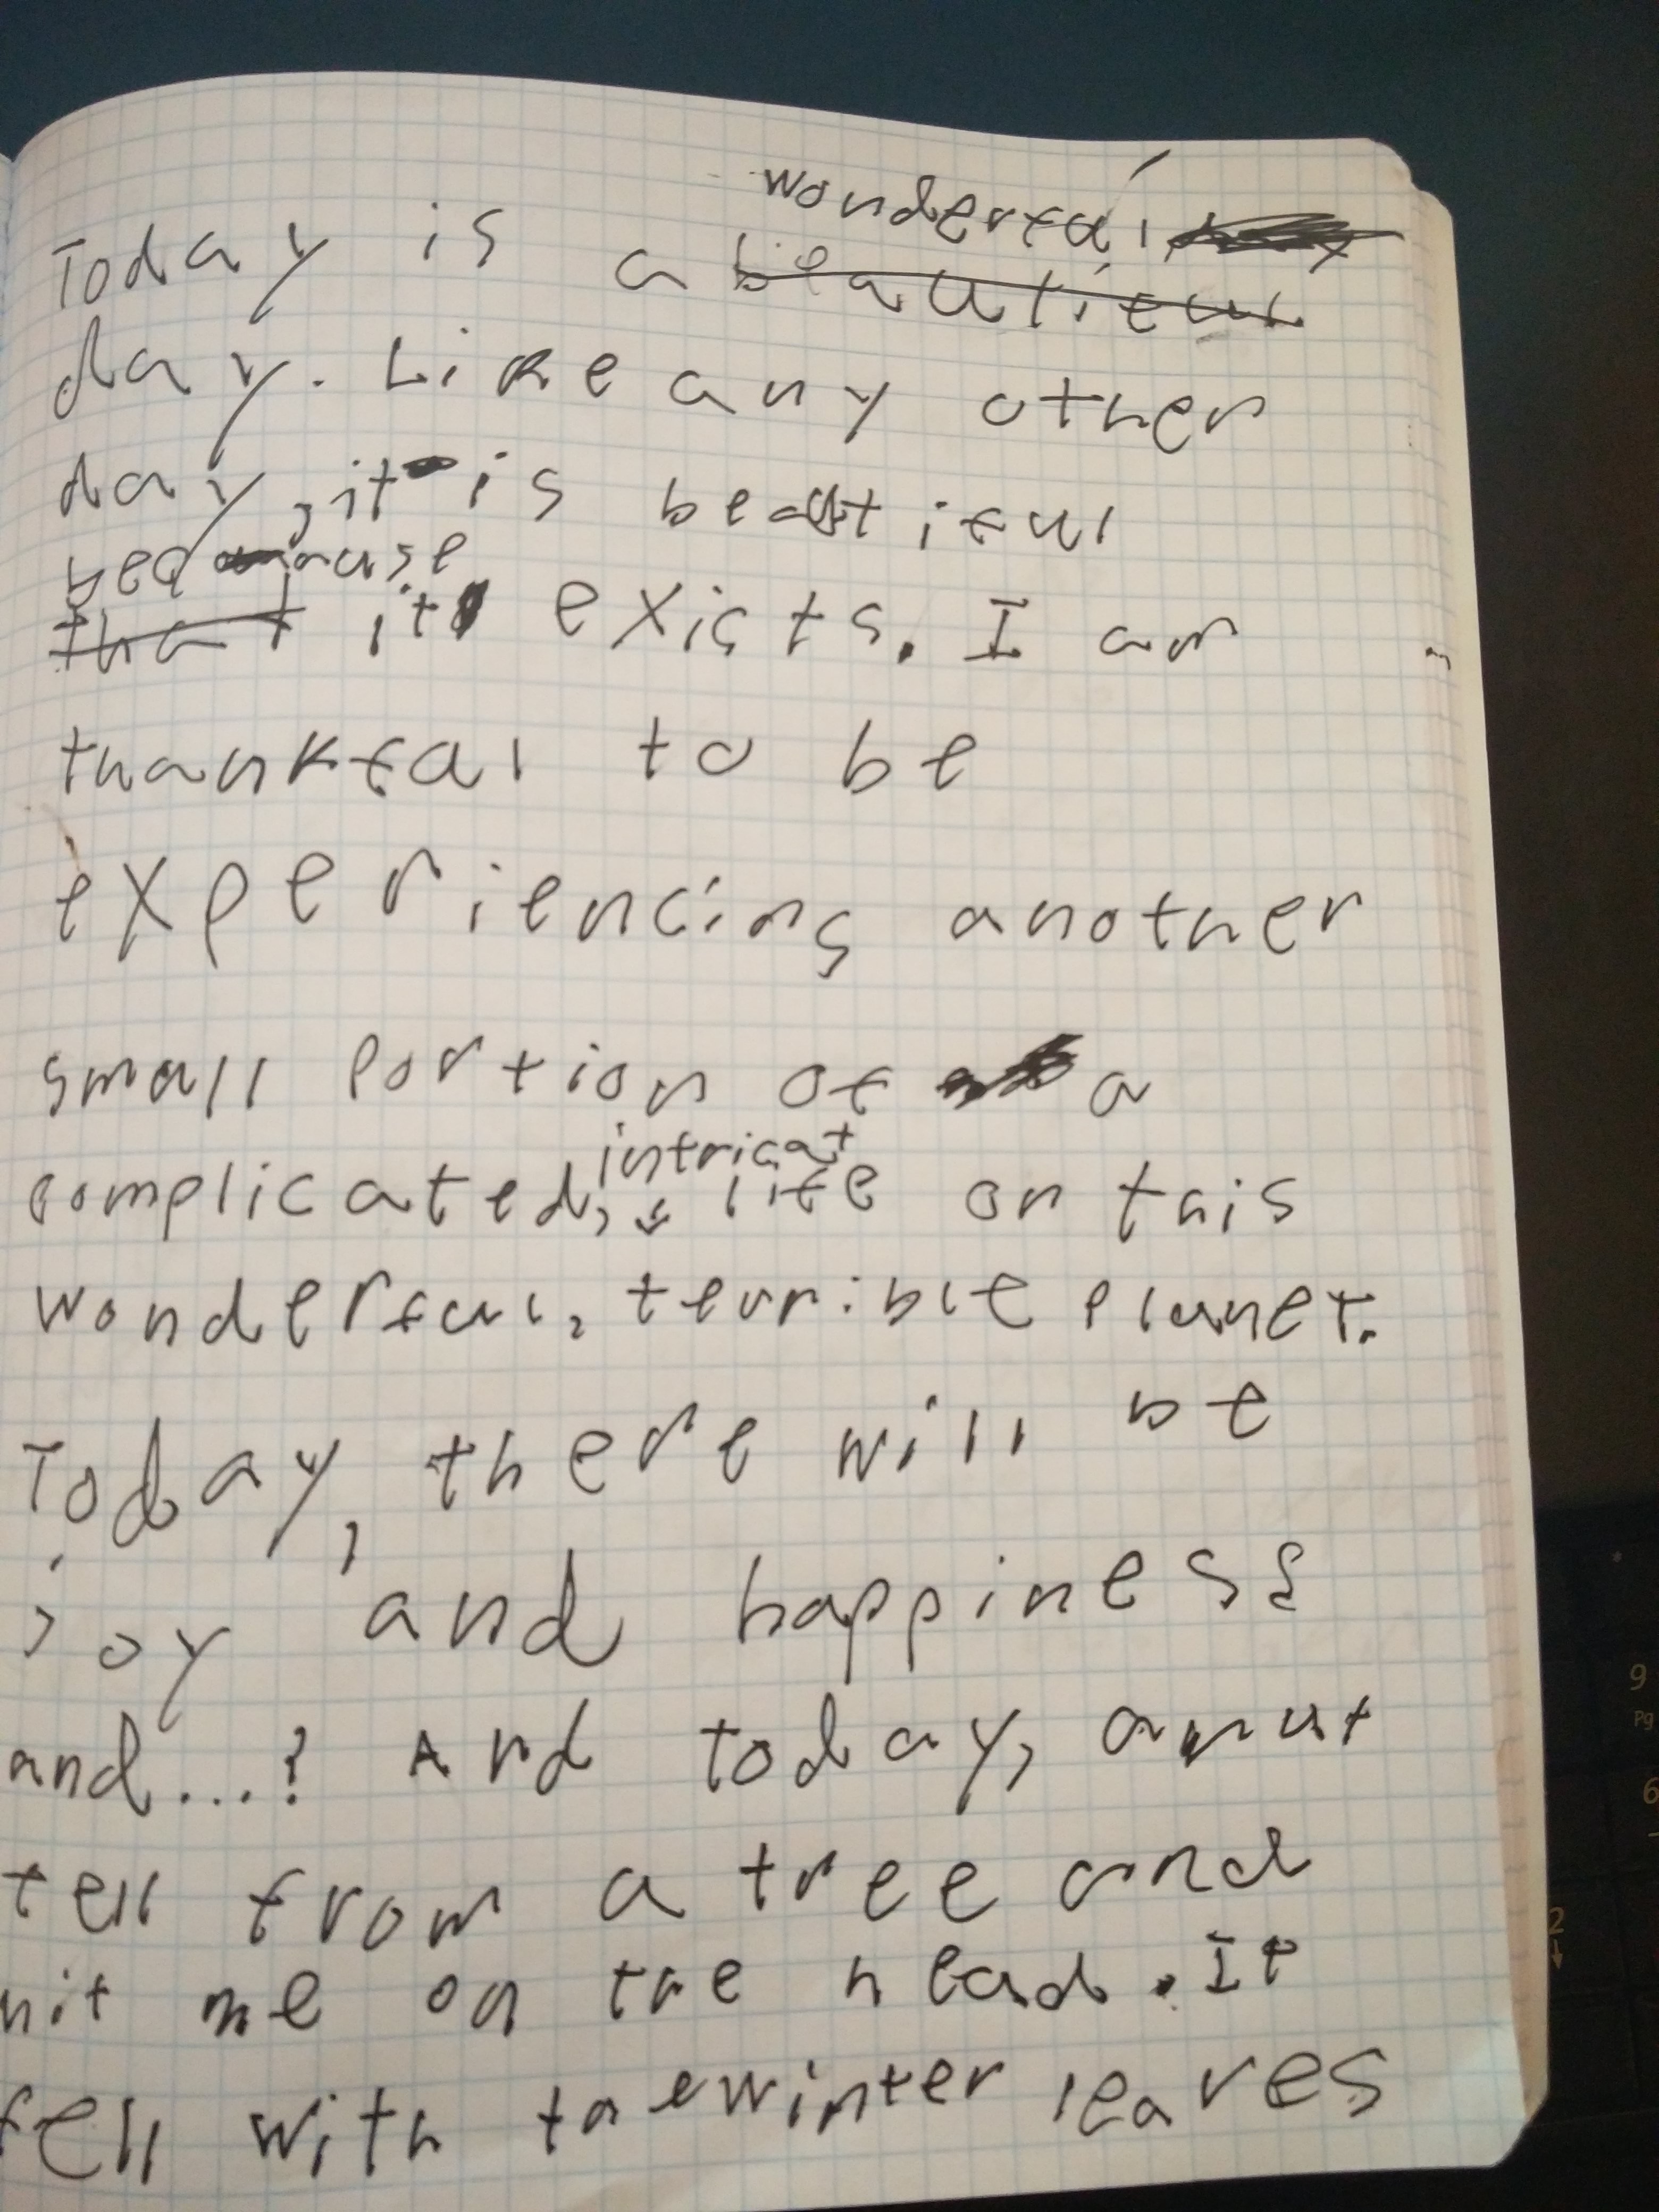 wonderful
Today is a beautiful
day. Like any other
day, it is beautiful
because
that it exists. I am
thankful to be
experiencing another
small portion of a
intricat
complicated, life on this
wonderful, terrible planet.
Today, there will be
joy and happiness
and...? And today, a nut
fell from a tree and
hit me on the head. It
fell with the winter leaves
9
Pg
6
2